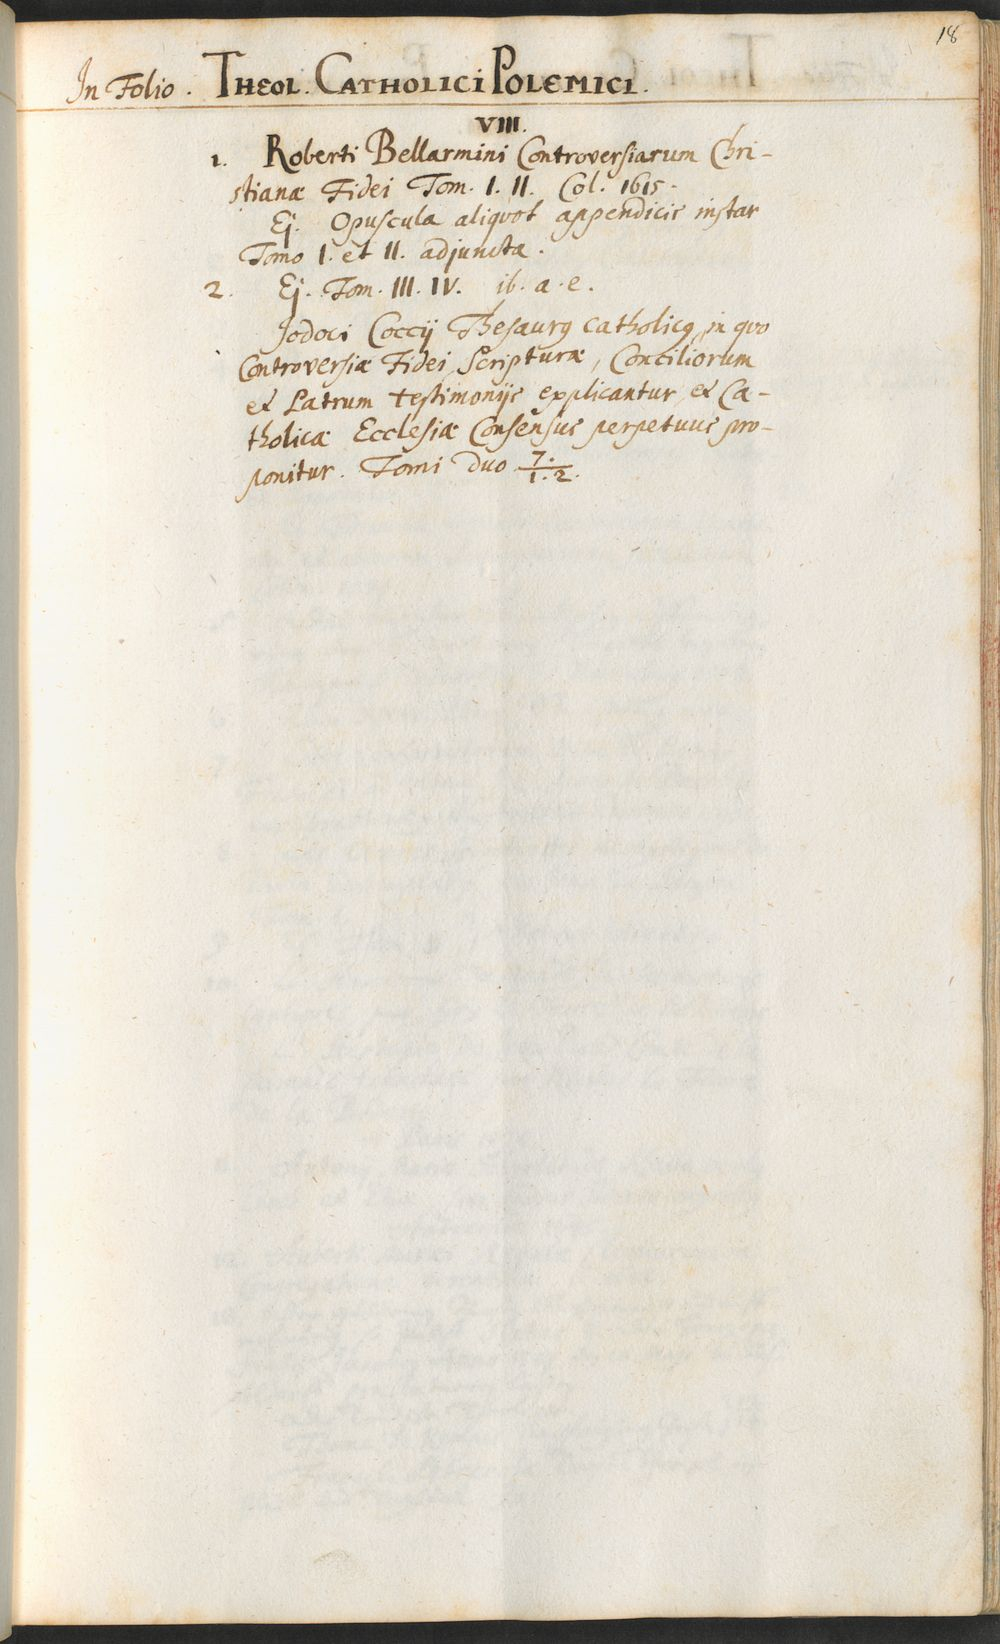 18
In Folio. THEOL. CATHOLICI POLEMICI.
VIII.
1. Roberti Bellarmini Controversiarum Chri-
stianæ Fidei Tom. I. II. Col. 1615.
Ej. Opuscula aliquot appendicis instar
Tomo I. et II. adjuncta.
2. Ej. Tom. III. IV. ib. a. e.
Jodoci Coccij Thesaurꝰ catholicꝰ, in quo
Controversiæ Fidei, Scripturæ, Conciliorum
et Patrum testimonijs explicantur, et Ca-
tholicæ Ecclesiæ Consensus perpetuus pro-
ponitur. Tomi duo 7./1.2.